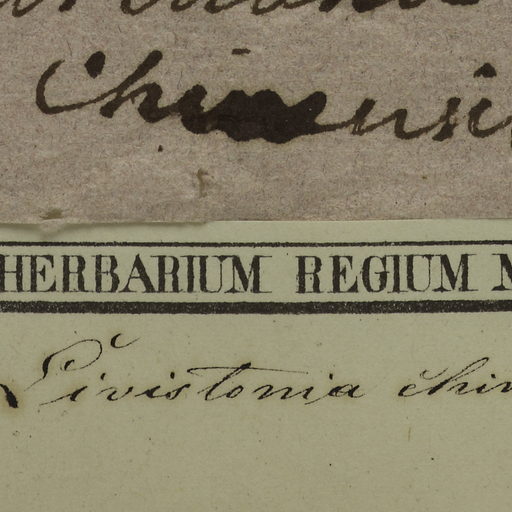 Chinensi
HERBARIUM REGIUM M
Livistonia chin